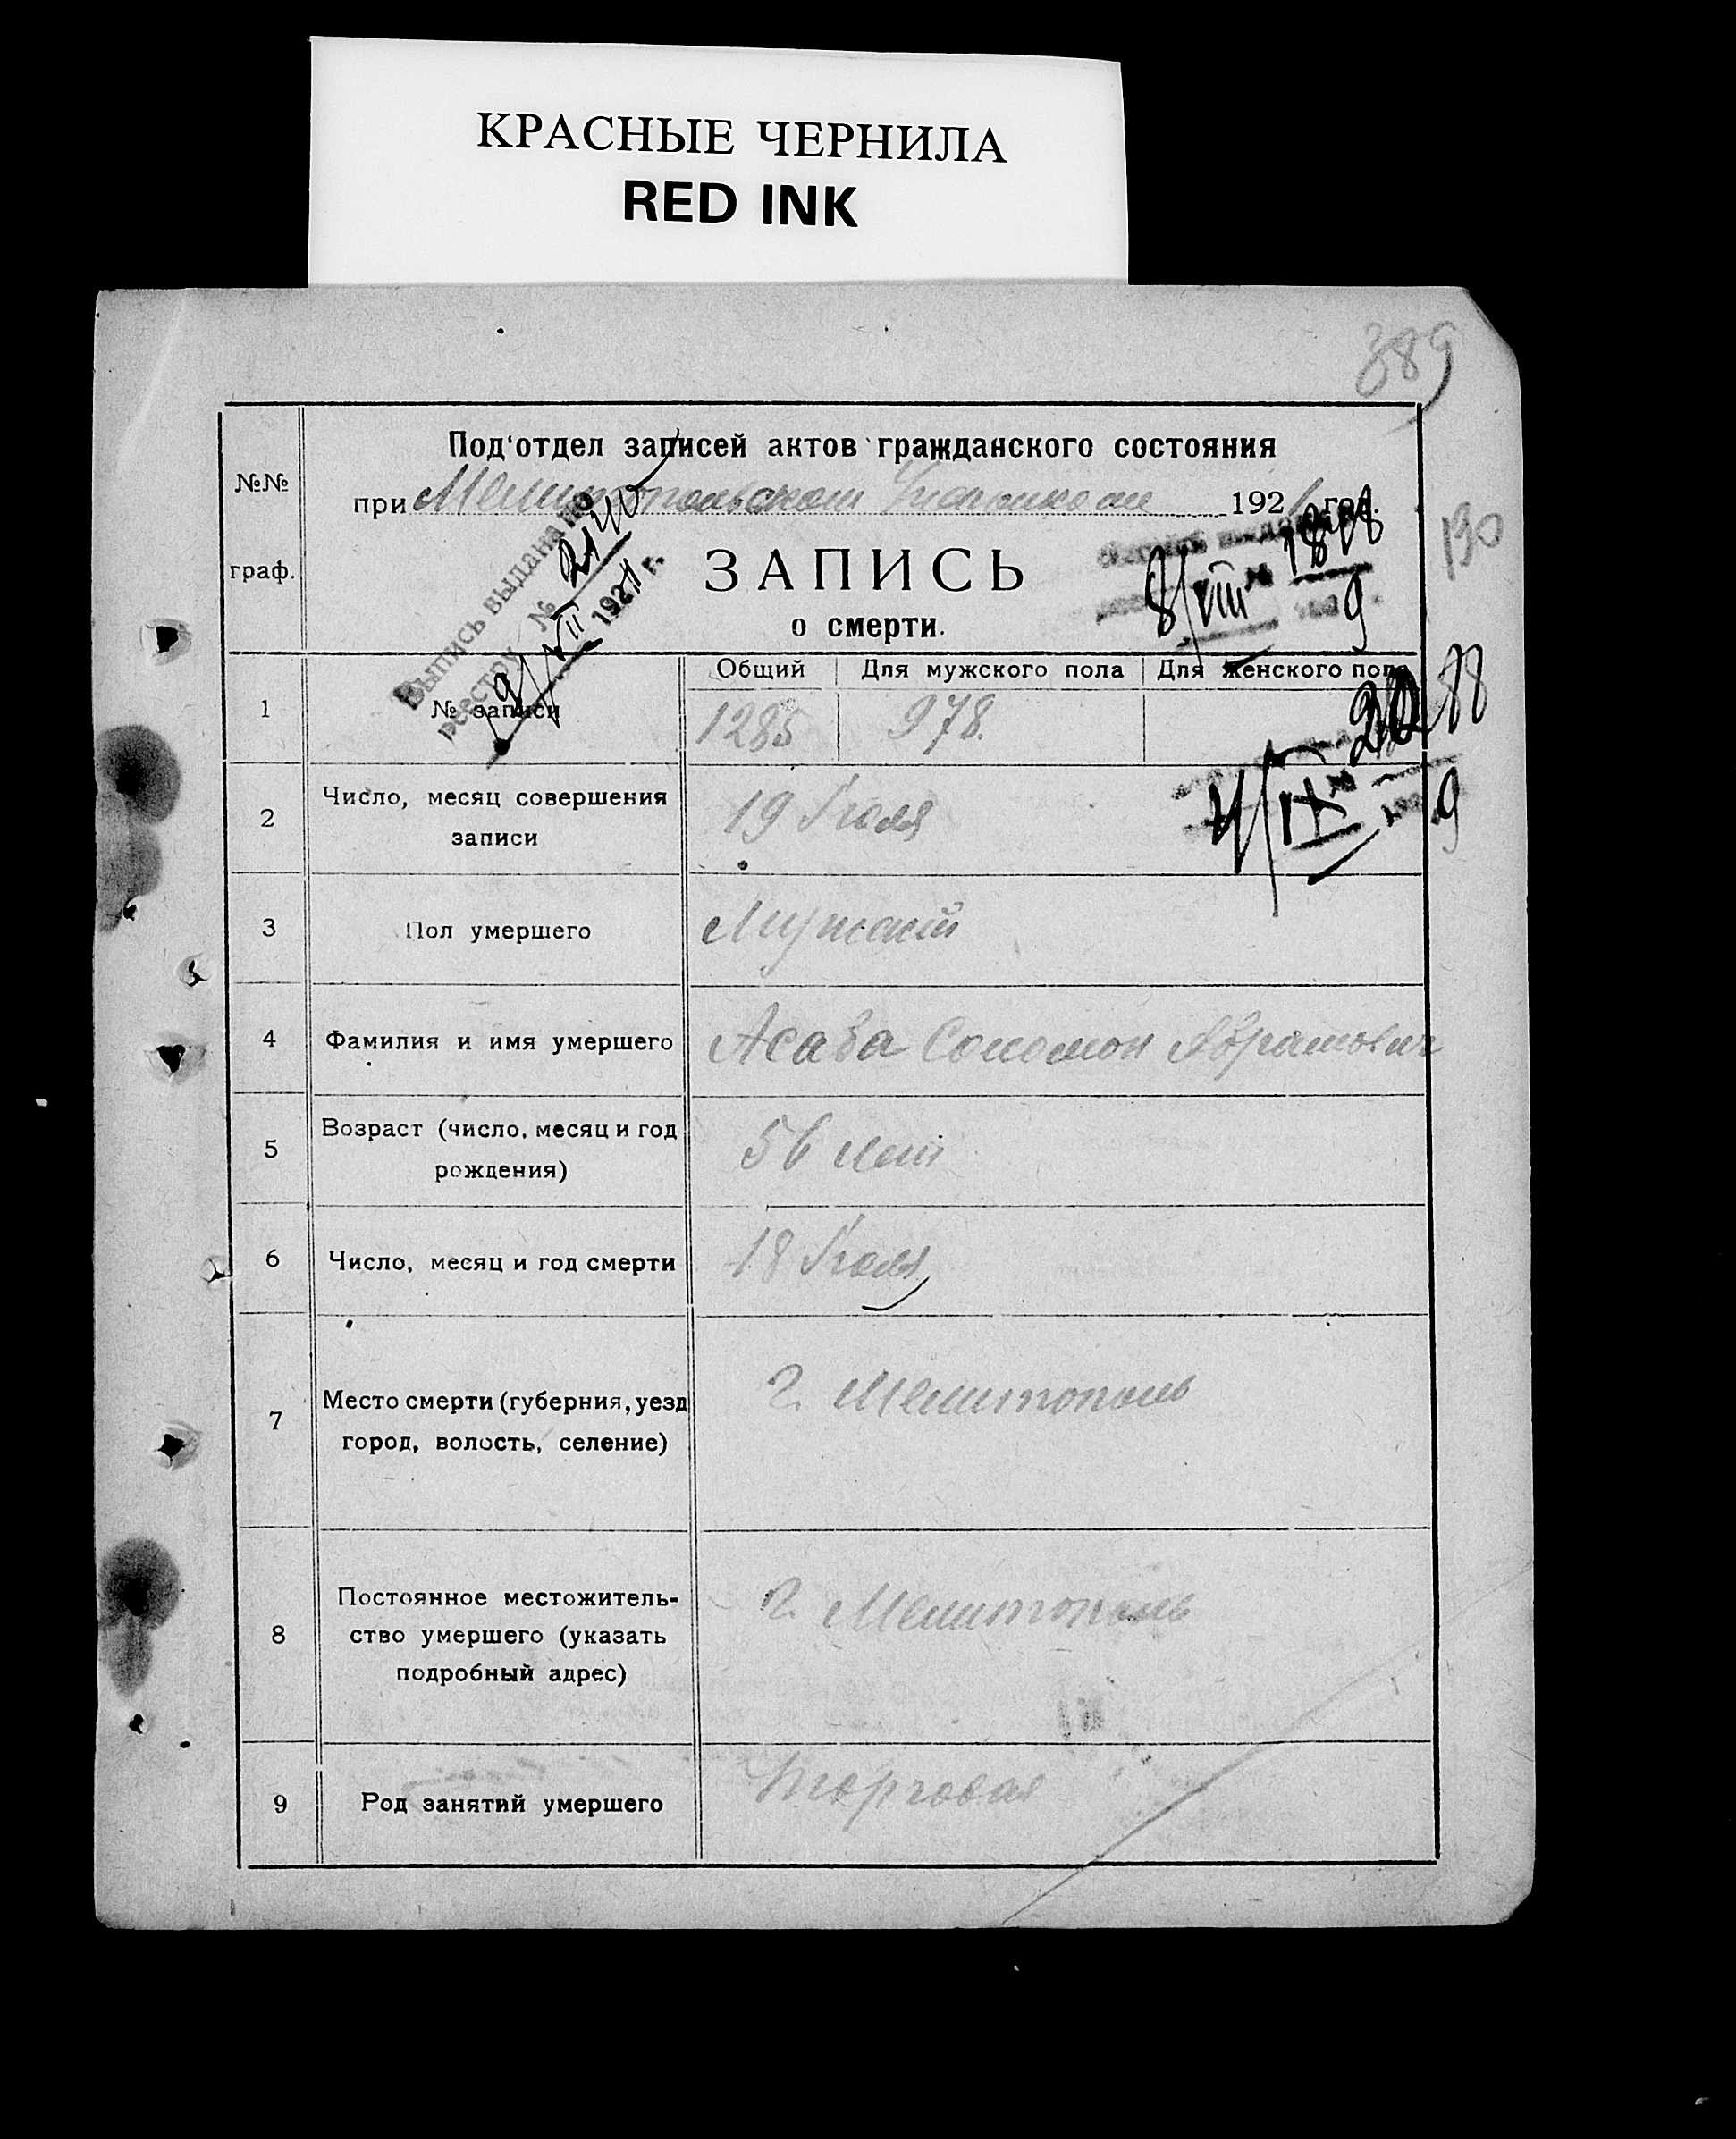 КРАСНЫЕ ЧЕРНИЛА
RED INK
389
Под'отдел записей актов гражданского состояния
№№
граф.
при Мелитопольском 192 год.
130
ЗАПИСЬ
о смерти.
Выпись выдана по
реестру № 2140
9/VII 192 г.
8/VIII № 1898
9
1
№ записи
Общий
Для мужского пола
Для женского пола
1285
978.
4/IX
9
2
Число, месяц совершения
записи
19 Июля
3
Пол умершего
Мужской
4
Фамилия и имя умершего
Асаба Соломон Абрамович
5
Возраст (число, месяц и год
рождения)
56 лет
6
Число, месяц и год смерти
18 Июля
7
Место смерти (губерния, уезд
город, волость, селение)
г. Мелитополь
8
Постоянное местожитель-
ство умершего (указать
подробный адрес)
г. Мелитополь
9
Род занятий умершего
Торговля